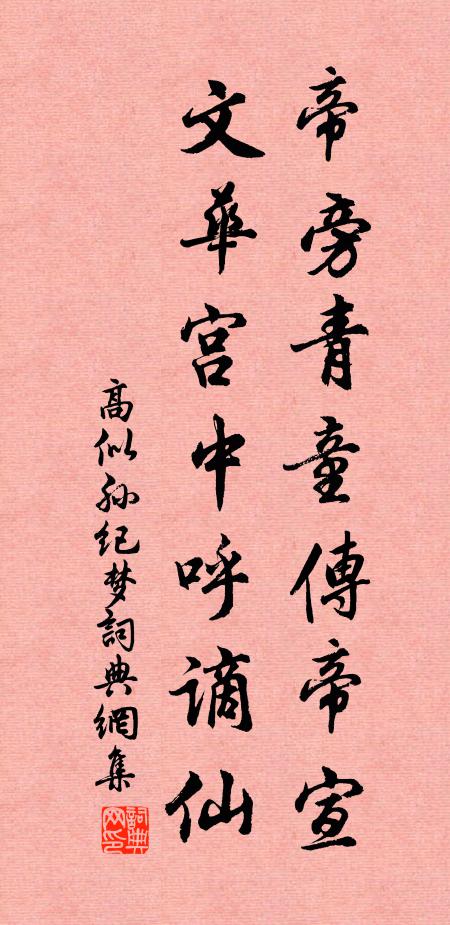 帝旁青童傳帝宣
文華宮中呼謫仙
高似孙纪梦詞典網集
詞典网印